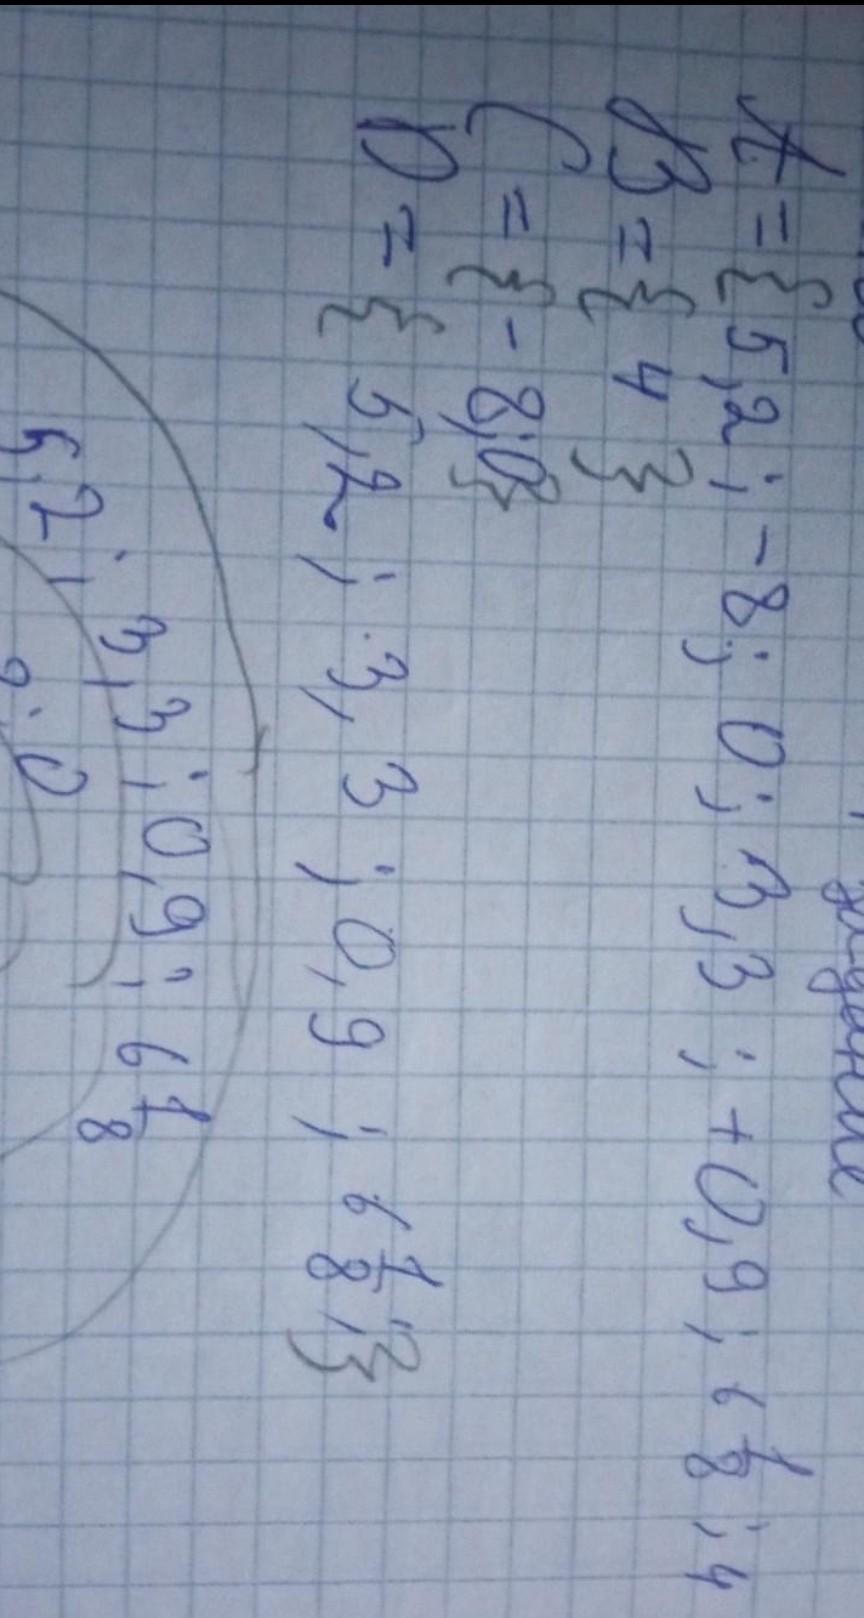 задание
A = { 5,2 ; -8 ; 0 ; 3,3 ; +0,9 ; 6 1/8 ; 4
B = { 4 }
C = { -8; 0 }
D = { 5,2 ; 3,3 ; 0,9 ; 6 1/8 ; }
5,2 ; 3,3 ; 0,9 ; 6 1/8
; 0